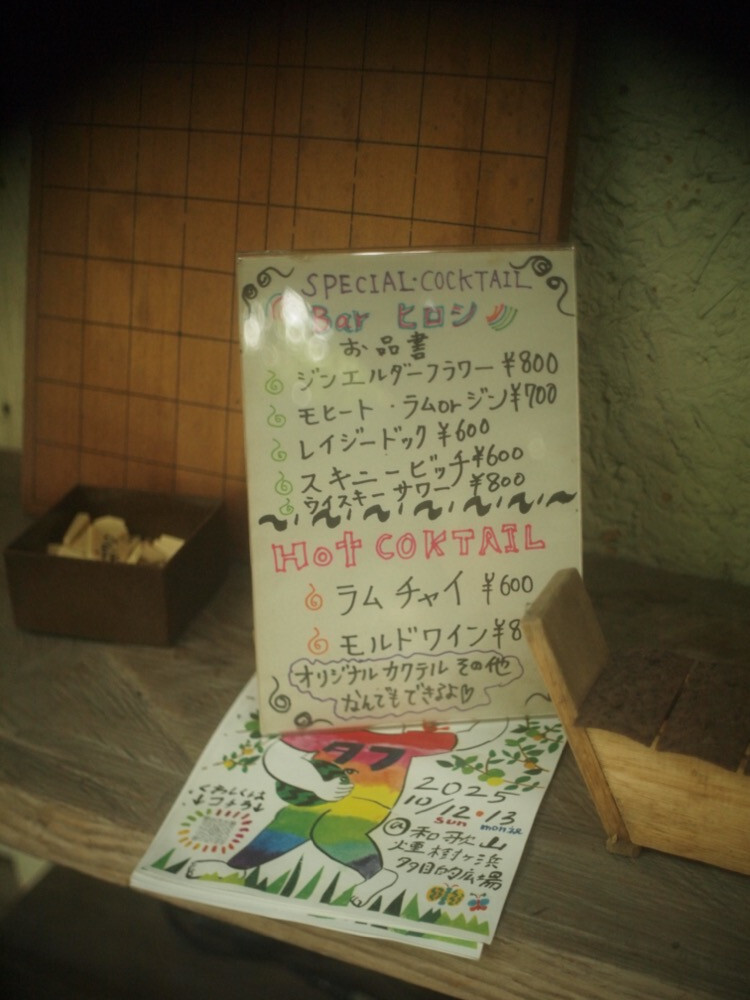 SPECIAL・COCKTAIL
Bar ヒロシ
お品書
ジンエルダーフラワー ¥800
モヒート ・ラムorジン¥700
レイジードック ¥600
スキニービッチ¥600
ウイスキー サワー ¥800
Hot COKTAIL
ラム チャイ ¥600
モルドワイン¥8
オリジナルカクテル その他
なんでもできるよ♡
タフ
くわしくは
↓コチラ↓
2025
10/12・13
sun
@和歌山
煙樹ヶ浜
多目的広場